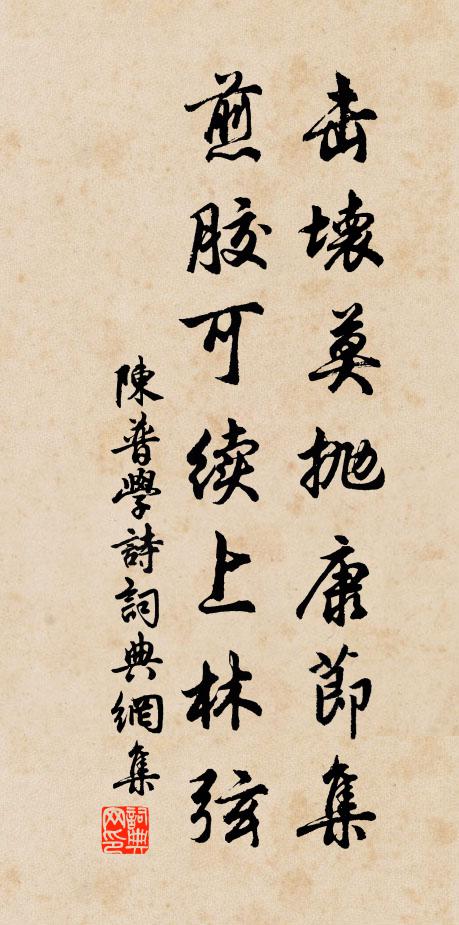 击壤莫抛康节集
煎胶可续上林弦
陳普學詩詞典網集
詞典網印